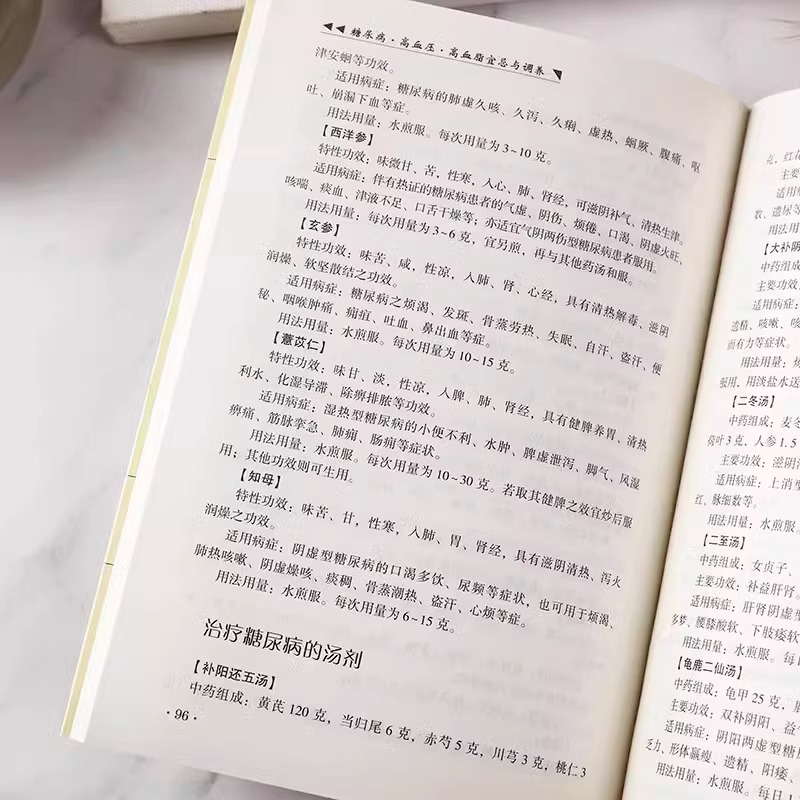 糖尿病·高血压·高血脂宜忌与调养
津安蛔等功效。
适用病症：糖尿病的肺虚久咳、久泻、久痢、虚热、蛔厥、腹痛、呕
吐、崩漏下血等症。
用法用量：水煎服。每次用量为 3~10 克。
【西洋参】
特性功效：味微甘、苦，性寒，入心、肺、肾经，可滋阴补气、清热生津。
适用病症：伴有热证的糖尿病患者的气虚、阴伤、烦倦、口渴、阴虚火旺、
咳喘、痰血、津液不足、口舌干燥等；亦适宜气阴两伤型糖尿病患者服用。
用法用量：每次用量为 3~6 克，宜另煎，再与其他药汤和服。
【玄参】
特性功效：味苦、咸，性凉，入肺、肾、心经，具有清热解毒、滋阴
润燥、软坚散结之功效。
适用病症：糖尿病之烦渴、发斑、骨蒸劳热、失眠、自汗、盗汗、便
秘、咽喉肿痛、痈疽、吐血、鼻出血等症。
用法用量：水煎服。每次用量为 10~15 克。
【薏苡仁】
特性功效：味甘、淡，性凉，入脾、肺、肾经，具有健脾养胃、清热
利水、化湿导滞、除痹排脓等功效。
适用病症：湿热型糖尿病的小便不利、水肿、脾虚泄泻、脚气、风湿
痹痛、筋脉挛急、肺痈、肠痈等症状。
用法用量：水煎服。每次用量为 10~30 克。若取其健脾之效宜炒后服
用；其他功效则可生用。
【知母】
特性功效：味苦、甘，性寒，入肺、胃、肾经，具有滋阴清热、泻火
润燥之功效。
适用病症：阴虚型糖尿病的口渴多饮、尿频等症状，也可用于烦渴、
肺热咳嗽、阴虚燥咳、痰稠、骨蒸潮热、盗汗、心烦等症。
用法用量：水煎服。每次用量为 6~15 克。
治疗糖尿病的汤剂
【补阳还五汤】
中药组成：黄芪 120 克，当归尾 6 克，赤芍 5 克，川芎 3 克，桃仁 3
·96·
克，红花
主要功
适用病
数、遗尿等
用法用
【大补阴
中药组成
主要功效
适用病症
遗精、咳嗽、咳
而有力等症状。
用法用量：
服用，用淡盐水送
【二冬汤】
中药组成：麦冬
荷叶 3 克，人参 1.5
主要功效：滋阴清
适用病症：上消型
红、脉细数等。
用法用量：水煎服
【二至汤】
中药组成：女贞子、
主要功效：补益肝肾。
适用病症：肝肾阴虚
多梦、腰膝酸软、下肢痿软
用法用量：水煎服。每日
【龟鹿二仙汤】
中药组成：龟甲 25 克，
主要功效：双补阴阳、益
适用病症：阴阳两虚型糖
乏力、形体羸瘦、遗精、阳痿、
用法用量：水煎服。每日 1